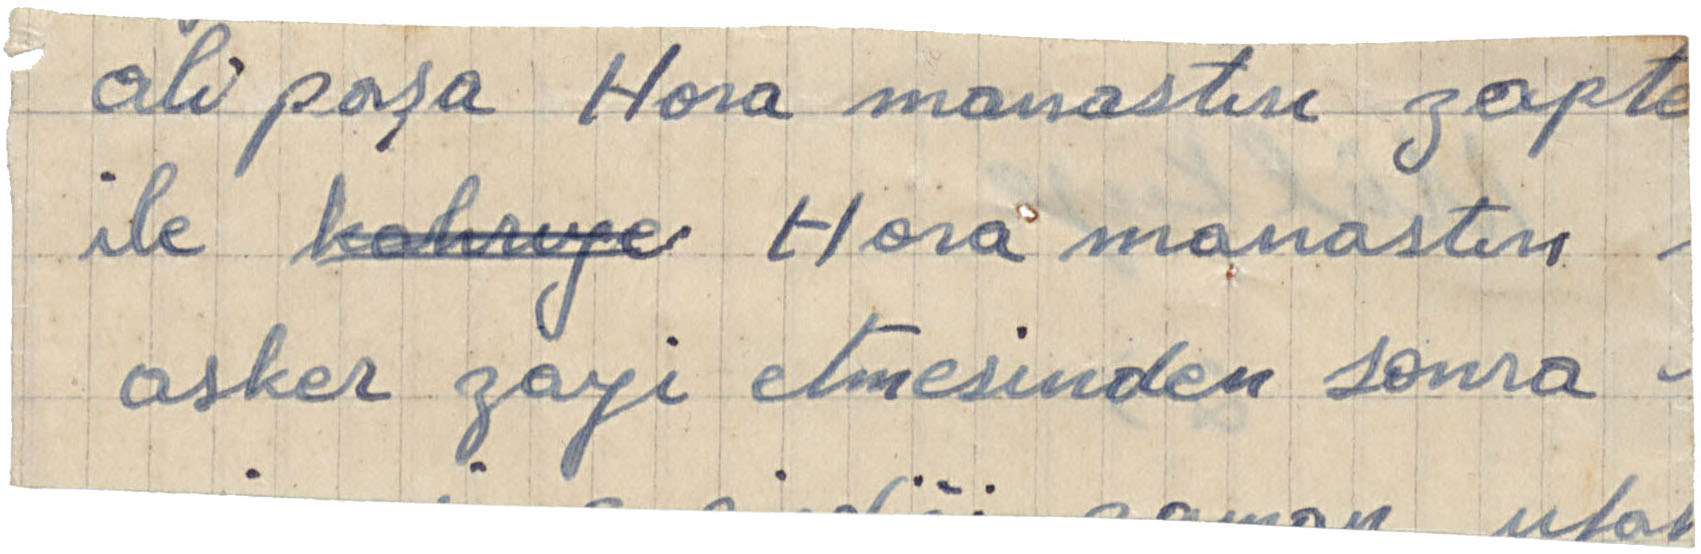 ali paşa Hora manastırı zapte
ile kahriye Hora manastırı
asker zayi etmesinden sonra
zaman